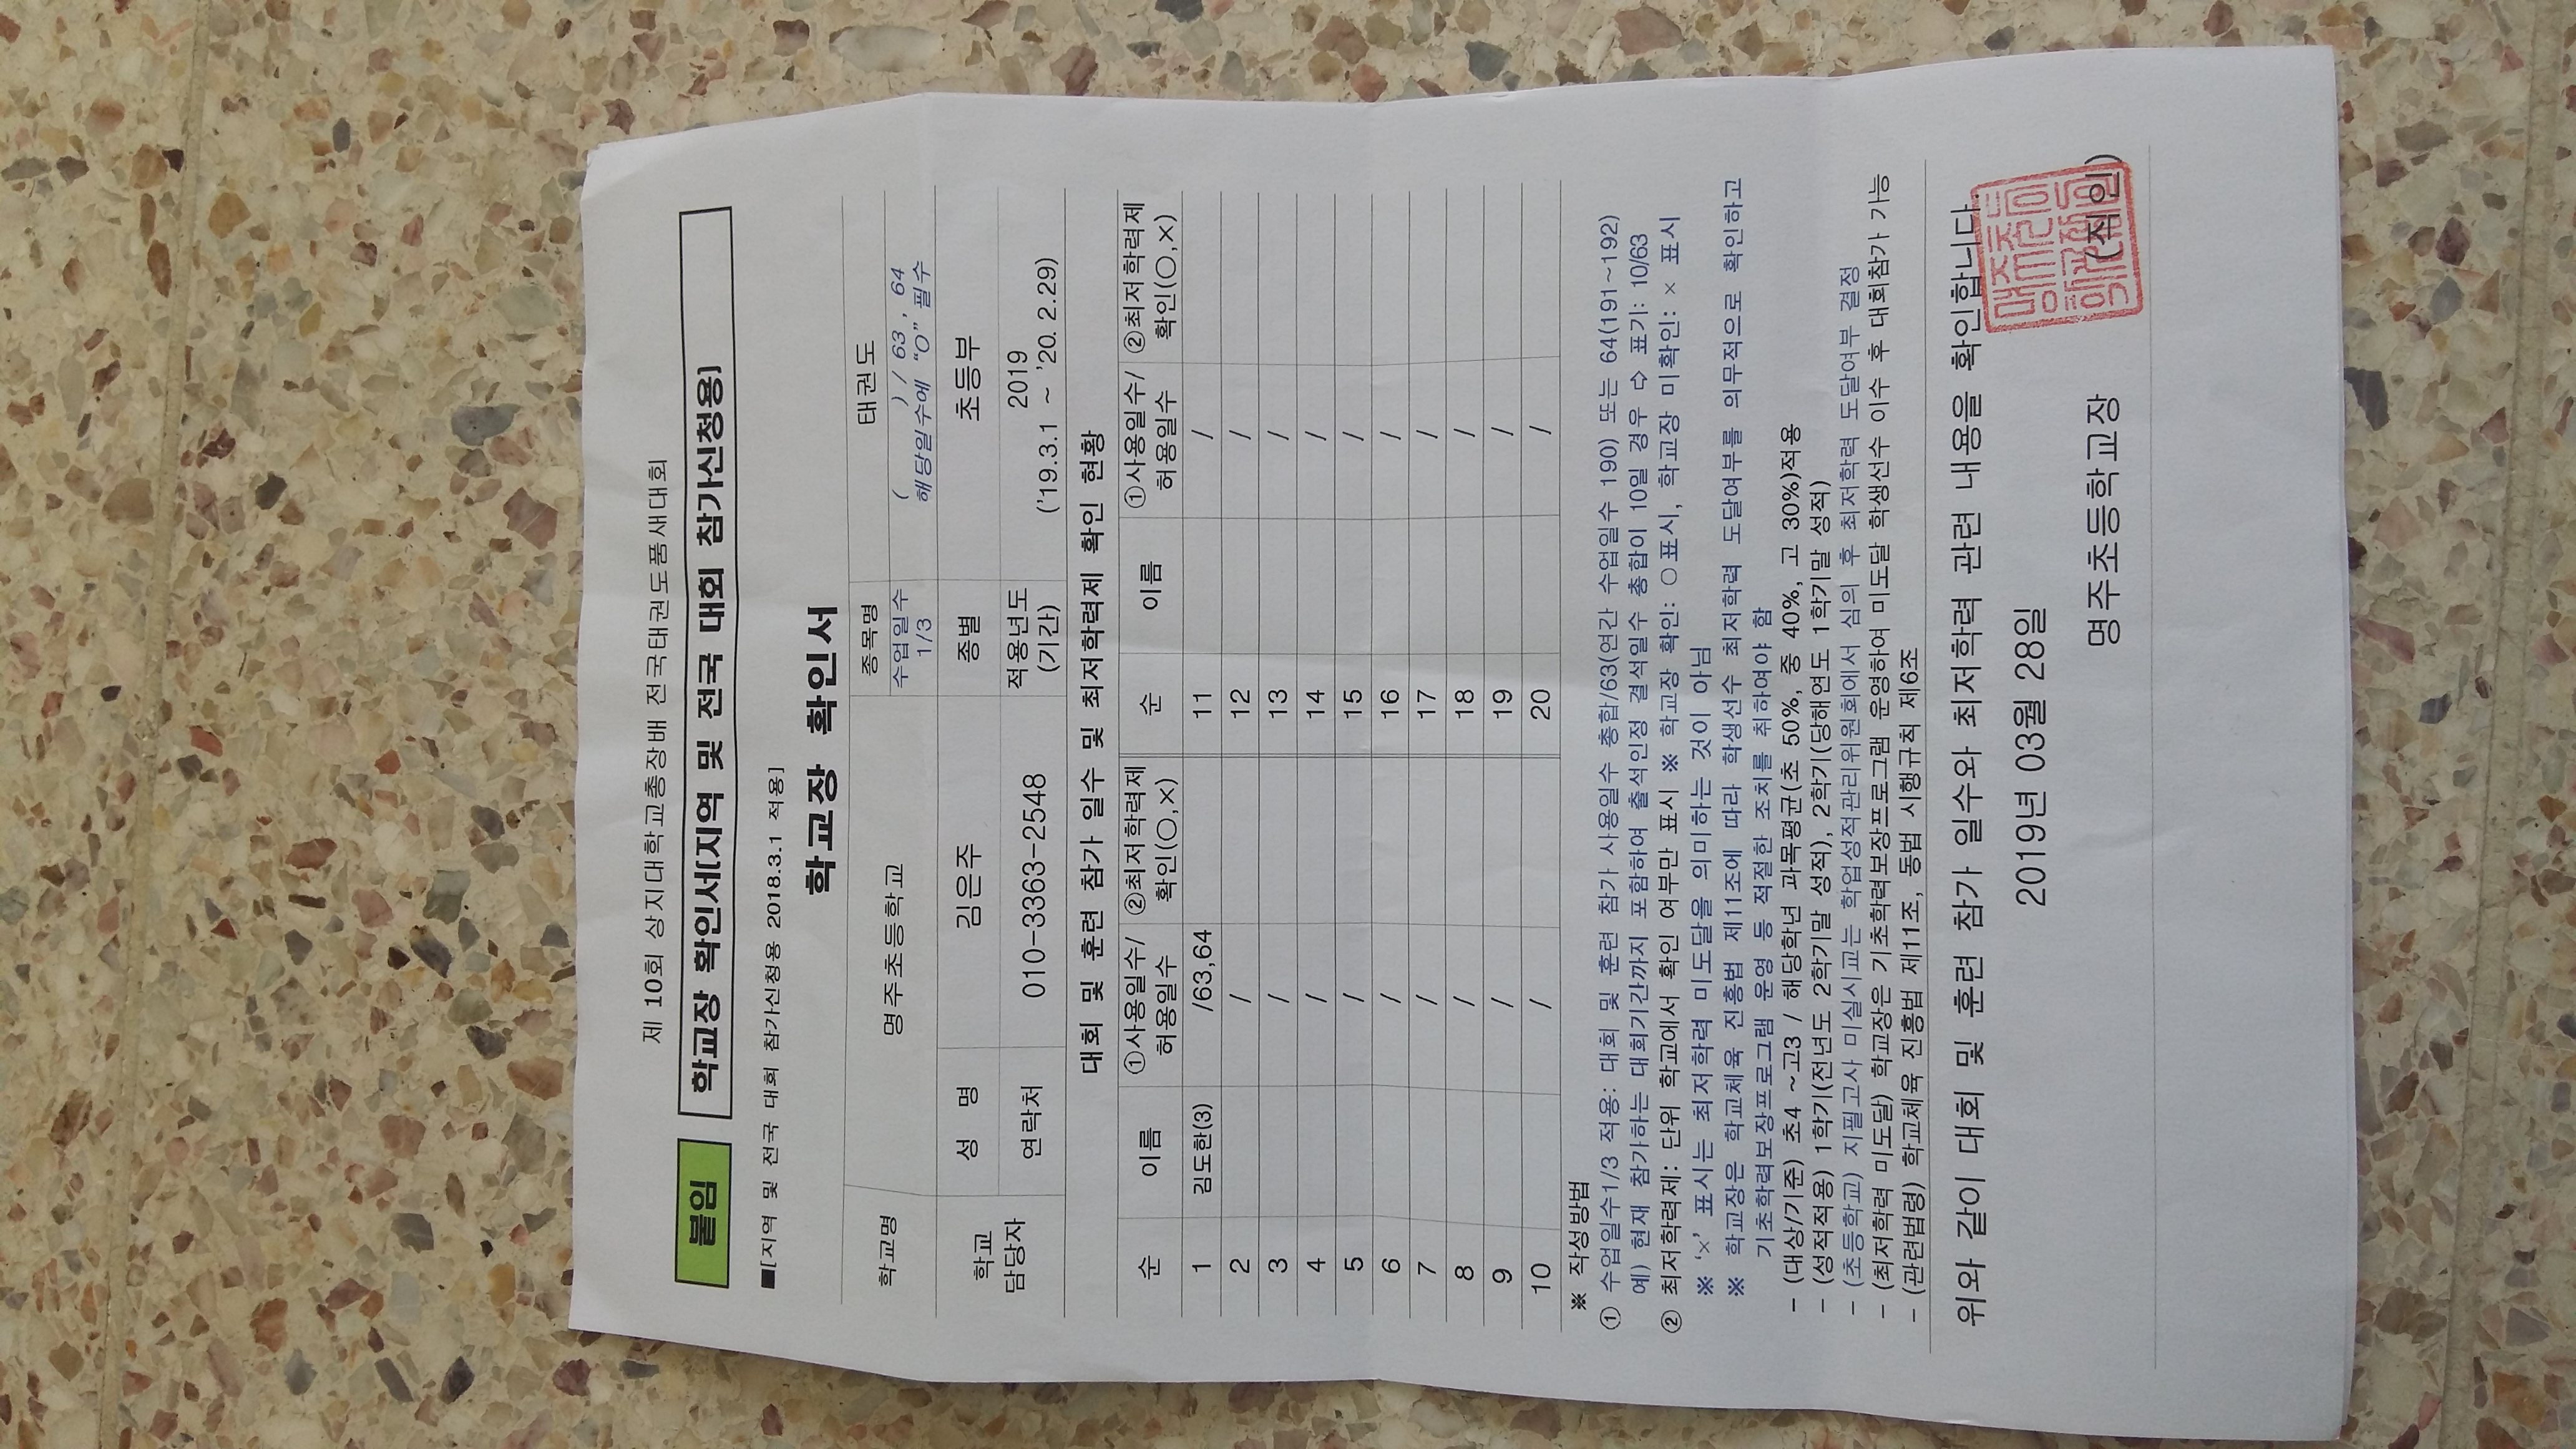 제 10회 상지대학교총장배 전국태권도품새대회
붙임 학교장 확인서[지역 및 전국 대회 참가신청용]
■[지역 및 전국 대회 참가신청용 2018.3.1 적용]
학교장 확인서
학교명 명주초등학교 종목명 태권도
수업일수 1/3 ( ) / 63 , 64
해당일수에 "O" 필수
학교 담당자 성 명 김은주 종별 초등부
연락처 010-3363-2548 적용년도 (기간) 2019
('19.3.1 ~ '20. 2.29)
대회 및 훈련 참가 일수 및 최저학력제 확인 현황
순 이름 ①사용일수/허용일수 ②최저학력제 확인(○,×) 순 이름 ①사용일수/허용일수 ②최저학력제 확인(○,×)
1 김도한(3) /63,64 11 /
2 / 12 /
3 / 13 /
4 / 14 /
5 / 15 /
6 / 16 /
7 / 17 /
8 / 18 /
9 / 19 /
10 / 20 /
※ 작성방법
① 수업일수1/3 적용: 대회 및 훈련 참가 사용일수 총합/63(연간 수업일수 190) 또는 64(191~192)
예) 현재 참가하는 대회기간까지 포함하여 출석인정 결석일수 총합이 10일 경우 ⇨ 표기: 10/63
② 최저학력제: 단위 학교에서 확인 여부만 표시 ※ 학교장 확인: ○표시, 학교장 미확인: × 표시
※ '×' 표시는 최저학력 미도달을 의미하는 것이 아님
※ 학교장은 학교체육 진흥법 제11조에 따라 학생선수 최저학력 도달여부를 의무적으로 확인하고
기초학력보장프로그램 운영 등 적절한 조치를 취하여야 함
- (대상/기준) 초4 ~고3 / 해당학년 과목평균(초 50%, 중 40%, 고 30%)적용
- (성적적용) 1학기(전년도 2학기말 성적), 2학기(당해연도 1학기말 성적)
- (초등학교) 지필고사 미실시교는 학업성적관리위원회에서 심의 후 최저학력 도달여부 결정
- (최저학력 미도달) 학교장은 기초학력보장프로그램 운영하여 미도달 학생선수 이수 후 대회참가 가능
- (관련법령) 학교체육 진흥법 제11조, 동법 시행규칙 제6조
위와 같이 대회 및 훈련 참가 일수와 최저학력 관련 내용을 확인합니다.
2019년 03월 28일
명주초등학교장 (직인)